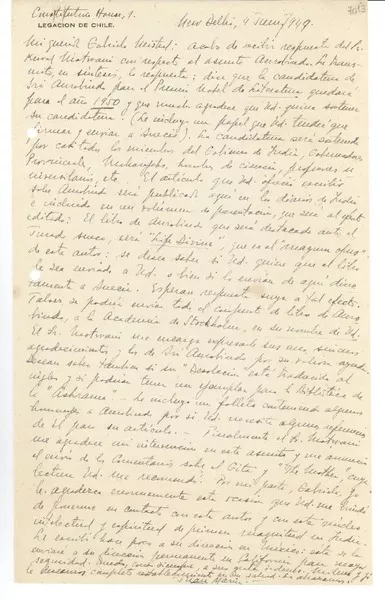 Constitution House, 1.
LEGACION DE CHILE
New Delhi, 4 Junio, 1949.
Mi querida Gabriela Mistral: acabo de recibir respuesta del Sr.
Motwani con respecto al asunto Aurobindo. Le transmito,
en síntesis, la respuesta: dice que la candidatura de
Sri Aurobindo para el Premio Nobel de Literatura quedará
para el año 1950 y que mucho agradece que Ud. quiera sostener
su candidatura (Le incluyo un papel que Ud. tendrá que
firmar y enviar a Suecia). La candidatura será sostenida
por casi todos los miembros del Gobierno de India, Gobernadores
Provinciales, Maharajahs, hombres de ciencia, profesores
universitarios, etc. El artículo que Ud. ofreció escribir
sobre Aurobindo será publicado aquí en los diarios de India
e incluido en un volumen de presentación, que será al efecto
editado. El libro de Aurobindo que será destacado ante el
Jurado sueco, será "Life Divine", que es el "magnum opus"
de este autor: se desea saber si Ud. quiere que el libro
le sea enviado a Ud. o bien si lo envían de aquí directamente
a Suecia. Esperan respuesta suya a tal efecto.
Talvez se podría enviar todo el conjunto de libros de Aurobindo,
a la Academia de Stockholm, en su nombre de Ud.
El Sr. Motwani me encarga expresarle sus más sinceros
agradecimientos y los de Sri Aurobindo por su valiosa ayuda.
Desean saber también si su "Desolación" está traducido al
inglés y si podrían tener un ejemplar para la Biblioteca de
la "Ashrama". Le incluyo un folleto conteniendo algunos
homenajes a Aurobindo por si Ud. necesita alguna referencia
de él para su artículo. — Finalmente el Sr. Motwani
me agradece mi intervención en este asunto y me anuncia
el envío de los Comentarios sobre el Gita y "The Mother", cuya
lectura Ud. me recomendó. Por mi parte, Gabriela, yo
le agradezco enormemente esta ocasión que Ud. me brindó
de ponerme en contacto con este autor y con este núcleo
intelectual y espiritual de primera magnitud en India.
Le escribí hace poco a su dirección en México: esta se la
enviaré a su dirección permanente en California para mayor
seguridad.